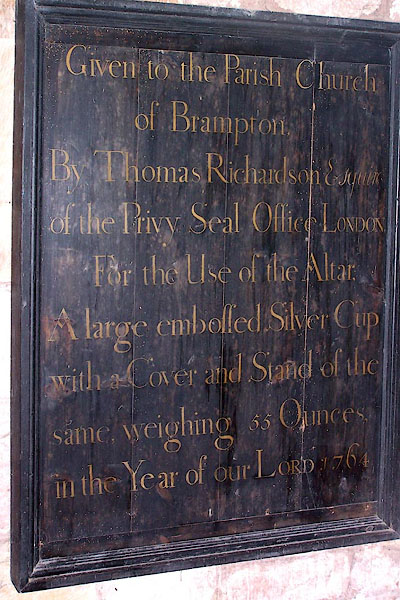 Given to the Parish Church
of Brampton,
By Thomas Richardson Esquire
of the Privy Seal Office LONDON
For the Use of the Altar,
A large embossed Silver Cup
with a Cover and Stand of the
same, weighing 55 Ounces,
in the Year of our LORD 1764